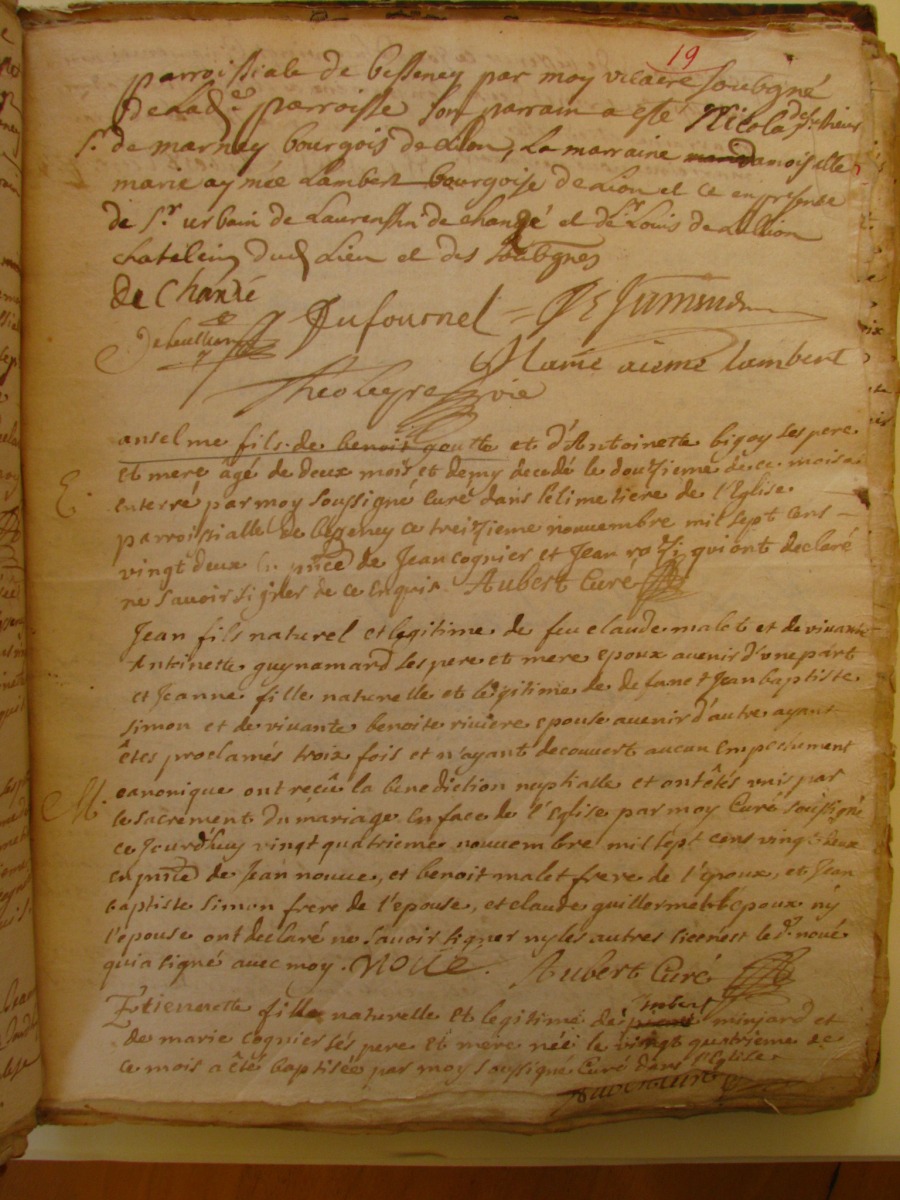 19
parroissiale de besseney par moy vicaire soubgné
de lad. parroisse son parrain a esté Nicola de
Sr. de marney bourgois de Lion, La marraine damoiselle
marie aymée Lambert bourgoise de Lion et ce en presence
de Sr. urbain de Laurenssin de chanzé et de Sr Louis de
chatelein dud Lieu et des soubgnes
de Chanzé
Dufournel
Marie aiemé lambert
anselme fils de benoit goutte et d'Antoinette bigoy ses pere
et mere âgé de deux mois et demy decedé le douzieme de ce mois a
enterré par moy soussigné curé dans le simetiere de l'Eglise
E.
parroissialle de besseney ce treizieme nouuembre mil sept cens
vingt deux en pnce de Jean cognier et Jean qui ont declaré
ne savoir signer de ce enquis. Aubert Curé
Jean fils naturel et legitime de feu claude malet et de viuante
Antoinette guynamard ses pere et mere epoux avenir d'vne part
et Jeanne fille naturelle et legitime de defunct Jean baptiste
simon et de viuante benoite riviere epouse avenir d'autre ayant
êtes proclamés troix fois et n'ayant decouvert aucun empechement
canonique ont reçûe la benediction nuptialle et ont êtés vnis par
M.
le sacrement du mariage en face de l'Eglise par moy Curé soussigné
ce Jourd'huy vingt quatrieme nouuembre mil sept cens vingt deux
en pnce de Jean nouue, et benoit malet frere de l'epoux, et Jean
baptiste simon frere de l'epouse, et claude guillermet l'epoux ny
l'epouse ont declaré ne savoir signer ny les autres si ce n'est le d. noué
qui a signé avec moy. Noue. Aubert Curé
Etiennette fille naturelle et legitime de minjard et
de marie cognier ses pere et mere née le vingt quatrieme de
ce mois a êté baptisée par moy soussigné Curé dans l'Eglise